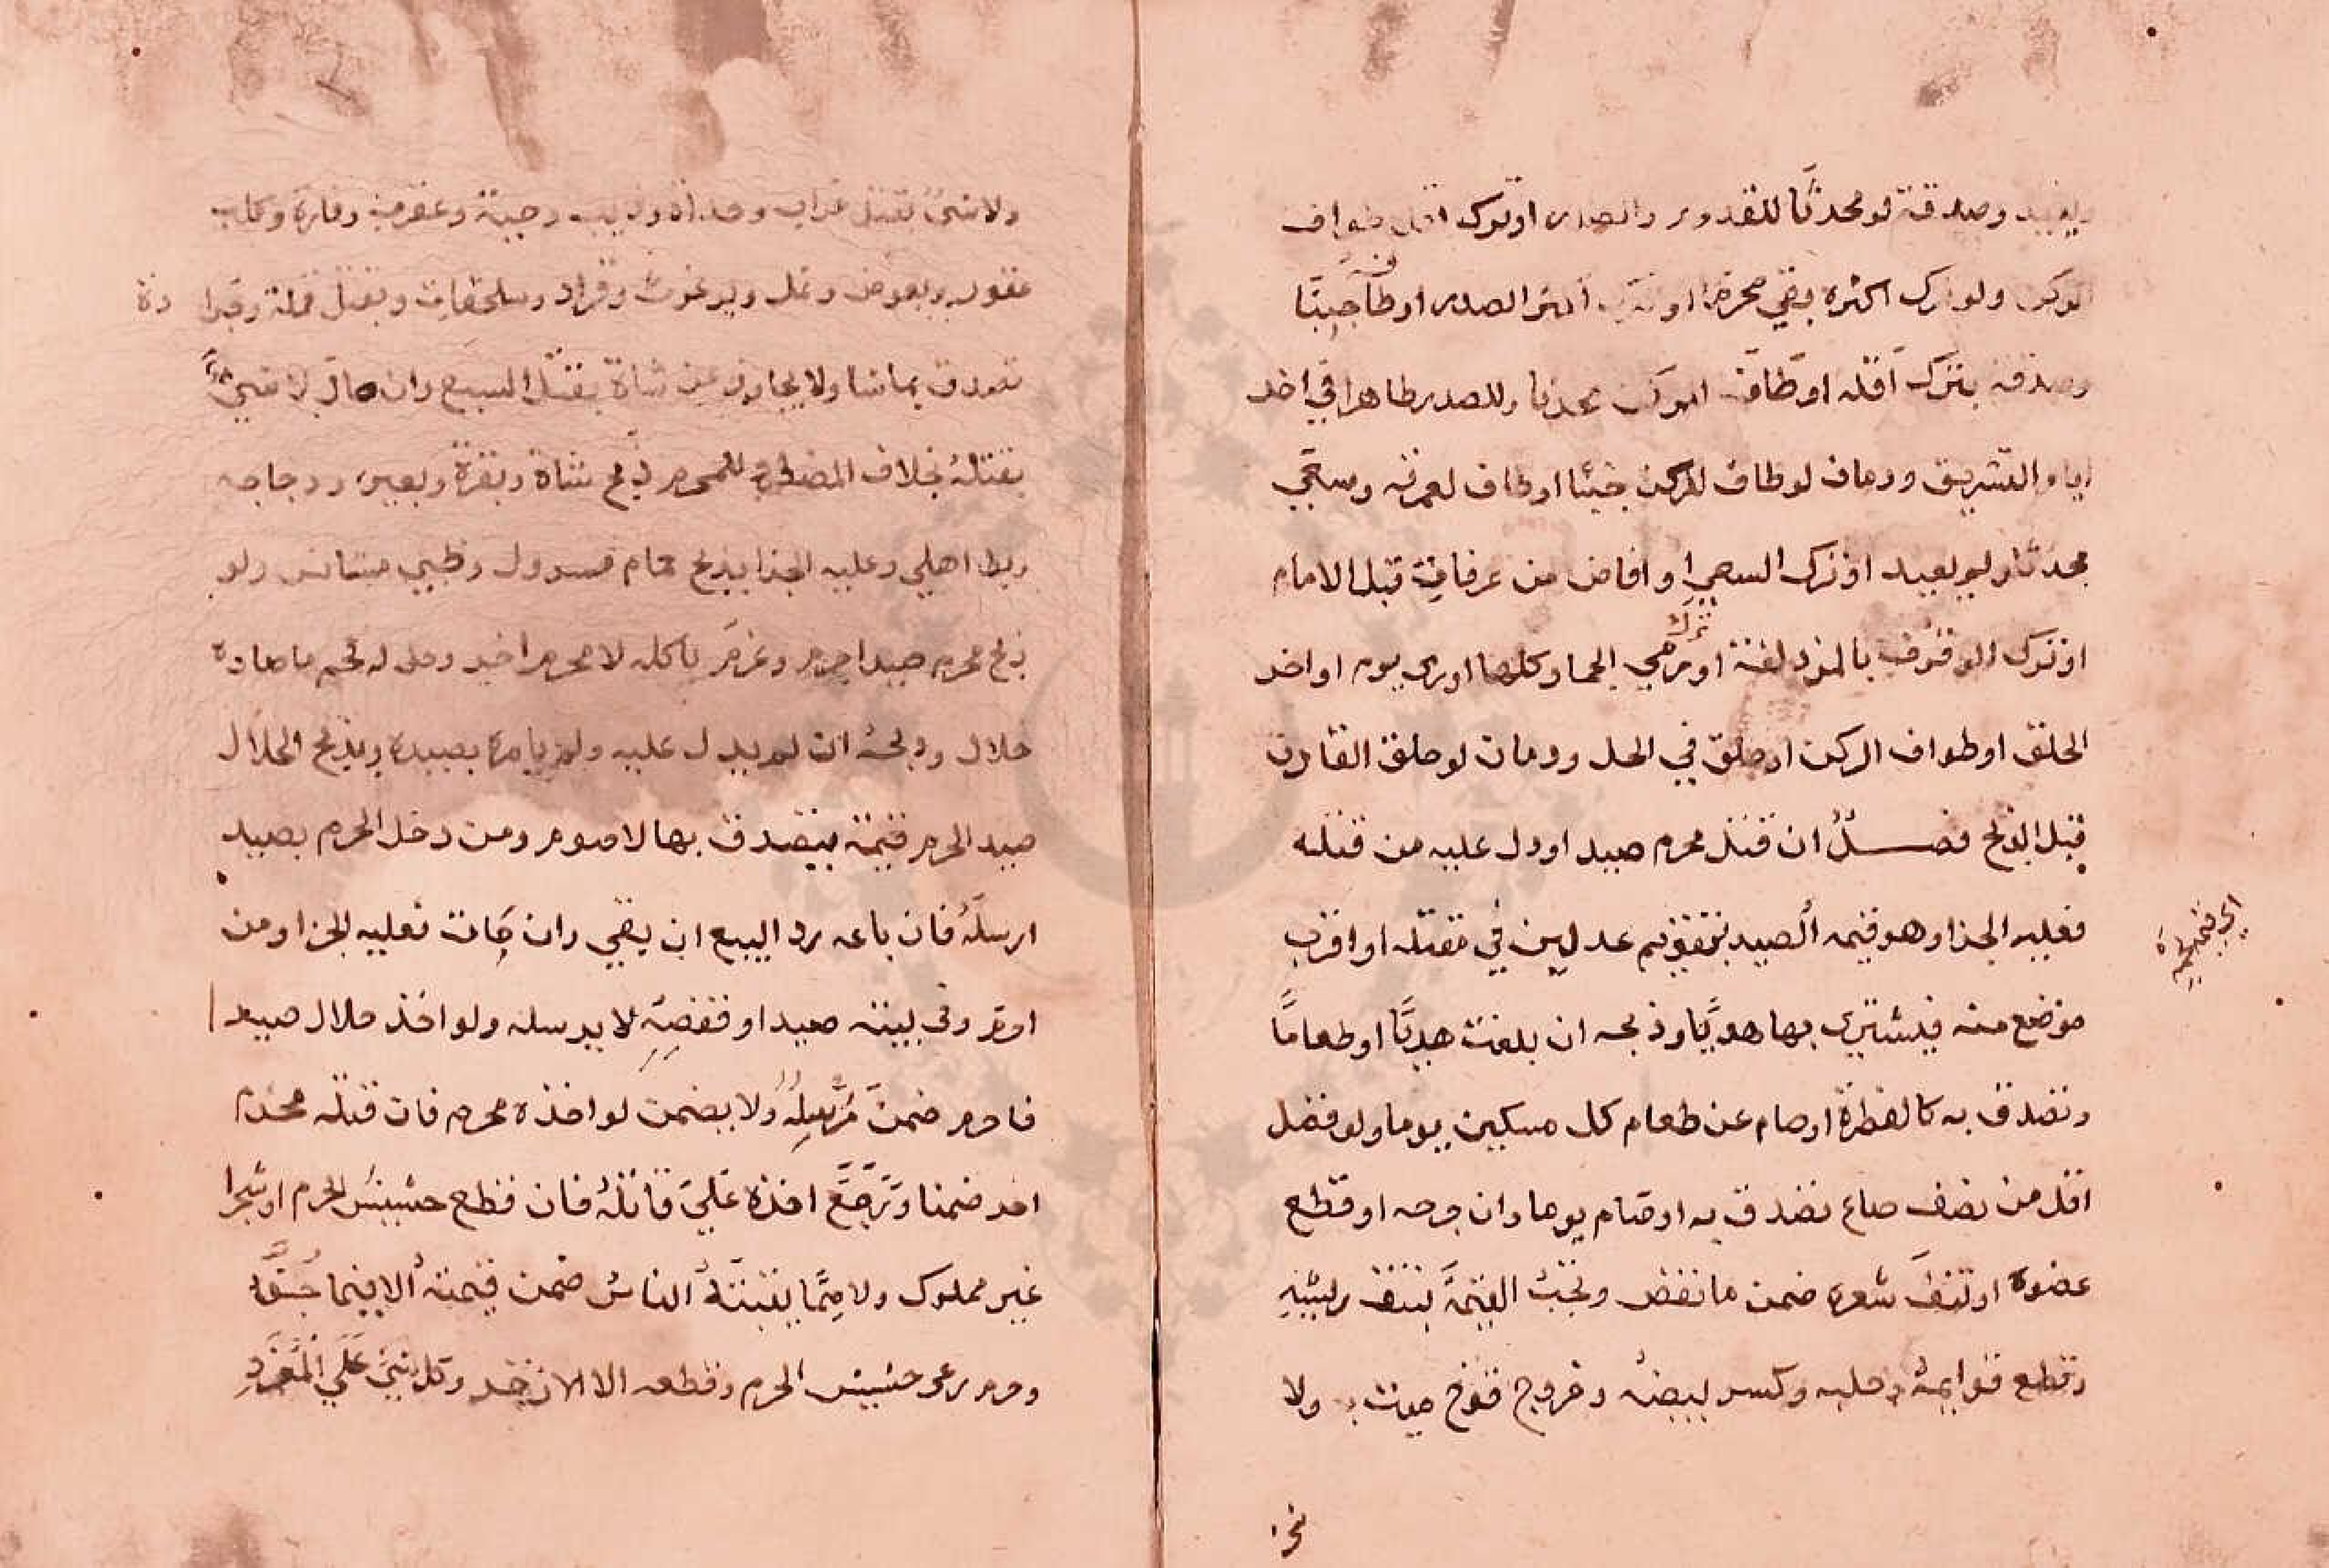 ويعيد وصدقة لو محدثا للقدوم والصدر او ترك اقل طواف
الركن ولو ترك اكثره بقي محرما او ترك اكثر الصدر او طافه جنبا
وصدقة بترك اقله او طاف الركن محدثا وللصدر طاهرا في اخر
ايام التشريق ودمان لو طاف للركن جنبا او طاف لعمرته وسعي
محدثا ولم يعيد او ترك السعي او افاض من عرفات قبل الامام
او ترك الوقوف بالمزدلفة او ترك رمي الجمار كلها او رمي يوم او اخر
الحلق او طواف الركن او حلق في الحل ودمان لو حلق القارن
قبل الذبح فصل ان قتل محرم صيدا ودل عليه من قتله
فعليه الجزا وهو قيمه الصيد بتقويم عدلين في مقتله او اقرب
موضع منه فيشتري بها هديا وذبحه ان بلغت هديا او طعاما
وتصدق به كالفطرة او صام عن طعام كل مسكين يوما ولو فضل
اقل من نصف صاع تصدق به او صام يوما وان جرحه او قطع
عضوه او نتف شعره ضمن ما نقص وتجب القيمة بنتف ريشه
وقطع قوايمه وحلبه وكسر بيضه وخروج فرخ ميت به ولا
ولا شئ بقتل غراب وحداة وذيب وحية وعقرب وفارة وكلب
عقور وبعوض ونمل وبرغوث وقراد وسلحفات وبقتل قملة وجرا دة
تصدق بما شا ولا يجاوز عن شاة بقتل السبع وان صال لا شي
بقتله بخلاف المضطر للمحرم ذبح شاة وبقرة وبعير ودجاجه
وبط اهلي وعليه الجزا بذبح حمام مسرول وظبي مستانس ولو
ذبح محرم صيدا حرم وغرم باكله لا محرم اخر وحل له لحم ما صاده
حلال وذبحه ان لم يدل عليه ولم يامره بصيده وبذبح الحلال
صيد الحرم قيمة يتصدق بها لا صوم ومن دخل الحرم بصيد
ارسله فان باعه رد البيع ان بقي وان فات فعليه الجزا ومن
احرم وفي بيته صيد او قفصه لا يرسله ولو اخذ حلال صيدا
فاحرم ضمن مرسله ولا يضمن لو اخذه محرم فان قتله محرم
اخر ضمنا ورجع اخذه علي قاتله فان قطع حشيش الحرم او شجرا
غير مملوك ولا مما ينبته الناس ضمن قيمته الا فيما جف
وحرم رعي حشيش الحرم وقطعه الا الاذخر وكل شئ علي المفرد